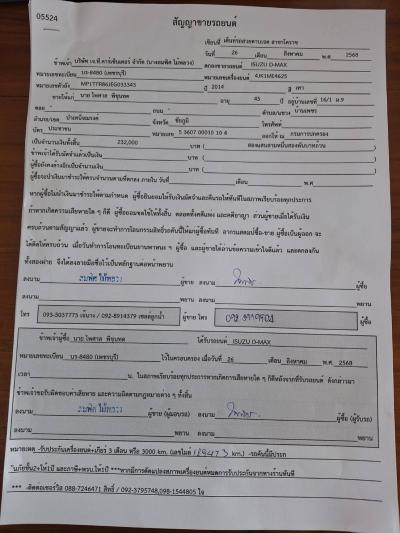 05524
สัญญาขายรถยนต์
เขียนที่ เต็นท์รถสวยตานบอด สาขาโคราช
วันที่ 26 เดือน สิงหาคม พ.ศ. 2568
ข้าพเจ้า บริษัท เจ.ที.คาร์เซ็นเตอร์ จำกัด (นางสมพิศ ไม้พลวง) ตกลงขายรถยนต์ ISUZU D-MAX
หมายเลขทะเบียน บธ-8480 (เพชรบุรี) หมายเลขเครื่องยนต์ 4JK1ME4625
หมายเลขตัวถัง MP1TFR86JEG033343 ปี 2014 สี เทา
ขายให้แก่ นาย ไพศาล พิขุนทด อายุ 45 ปี อยู่บ้านเลขที่ 16/1 ม.9
ซอย - ถนน - ตำบล/แขวง บ้านเพชร
อำเภอ/เขต บำเหน็จณรงค์ จังหวัด ชัยภูมิ โทรศัพท์
บัตร ประชาชน หมายเลข 5 3607 00010 10 4 ออกให้ ณ กรมการปกครอง
เป็นจำนวนเงินทั้งสิ้น 232,000 บาท ( สองแสนสามหมื่นสองพันบาทถ้วน )
ข้าพเจ้าได้รับมัดจำแล้วเป็นเงิน บาท ( )
ผู้ซื้อยังคงค้างอีกเป็นจำนวนเงิน บาท ( )
ผู้ซื้อจะนำเงินมาชำระให้ครบจำนวนตามที่ตกลง ภายใน วันที่ เดือน พ.ศ.
หากผู้ซื้อไม่นำเงินมาชำระให้ตามกำหนด ผู้ซื้อยินยอมให้ริบเงินมัดจำและคืนรถให้ทันทีในสภาพเรียบร้อยทุกประการ
ถ้าหากเกิดความเสียหายใด ๆ ก็ดี ผู้ซื้อยอมชดใช้ให้ทั้งสิ้น ตลอดทั้งคดีแพ่ง และคดีอาญา ส่วนผู้ขายเมื่อได้รับเงิน
ครบถ้วนตามสัญญาแล้ว ผู้ขายจะทำการโอนกรรมสิทธิ์รถคันนี้ให้แก่ผู้ซื้อทันที อากรแสตมป์ซื้อ-ขาย ผู้ซื้อเป็นผู้ออก จะ
ได้ติดให้ครบถ้วน เมื่อรับทำการโอนทะเบียนยานพาหนะ ฯ ผู้ซื้อ และผู้ขายได้อ่านข้อความเข้าใจดีแล้ว และตกลงกัน
ทั้งสองฝ่าย จึงได้ลงลายมือชื่อไว้เป็นหลักฐานต่อหน้าพยาน
ลงนาม สมพิศ ไม้พลวง ผู้ขาย ลงนาม ผู้ซื้อ
ลงนาม พยาน ลงนาม พยาน
โทร 093-5037775 เจ๊นาง / 092-8914379 เซลล์ลูกน้ำ ผู้ขาย โทร ผู้ซื้อ
ข้าพเจ้าผู้ซื้อ นาย ไพศาล พิขุนทด ได้รับรถยนต์ ISUZU D-MAX
หมายเลขทะเบียน บธ-8480 (เพชรบุรี) ไว้ในครอบครอง เมื่อวันที่ 26 เดือน สิงหาคม พ.ศ. 2568
เวลา น. ในสภาพเรียบร้อยทุกประการหากเกิดการเสียหายใด ๆ ก็ดีหลังจากที่รับรถยนต์ ดังกล่าวมา
ข้าพเจ้าขอรับผิดชอบค่าเสียหาย และความผิดตามกฎหมายต่าง ๆ ทั้งสิ้น
ลงนาม สมพิศ ไม้พลวง ผู้ขาย (ผู้มอบรถ) ลงนาม ผู้ซื้อ (ผู้รับรถ)
ลงนาม พยาน ลงนาม พยาน
หมายเหตุ -รับประกันเครื่องยนต์+เกียร์ 3 เดือน หรือ 3000 km. (เลขไมล์ 189473 km.) -รถคันนี้มีประก
*นภัยชั้น2+ให้1ปี และภาษี+พรบ.ให้1ปี ***หากมีการดัดแปลงสภาพเครื่องยนต์หมดการรับประกันจากทางร้านทันที
*** -ติดต่อเซอร์วิส 088-7246471 สิทธิ์ / 092-3795748,098-1544805 ใจ